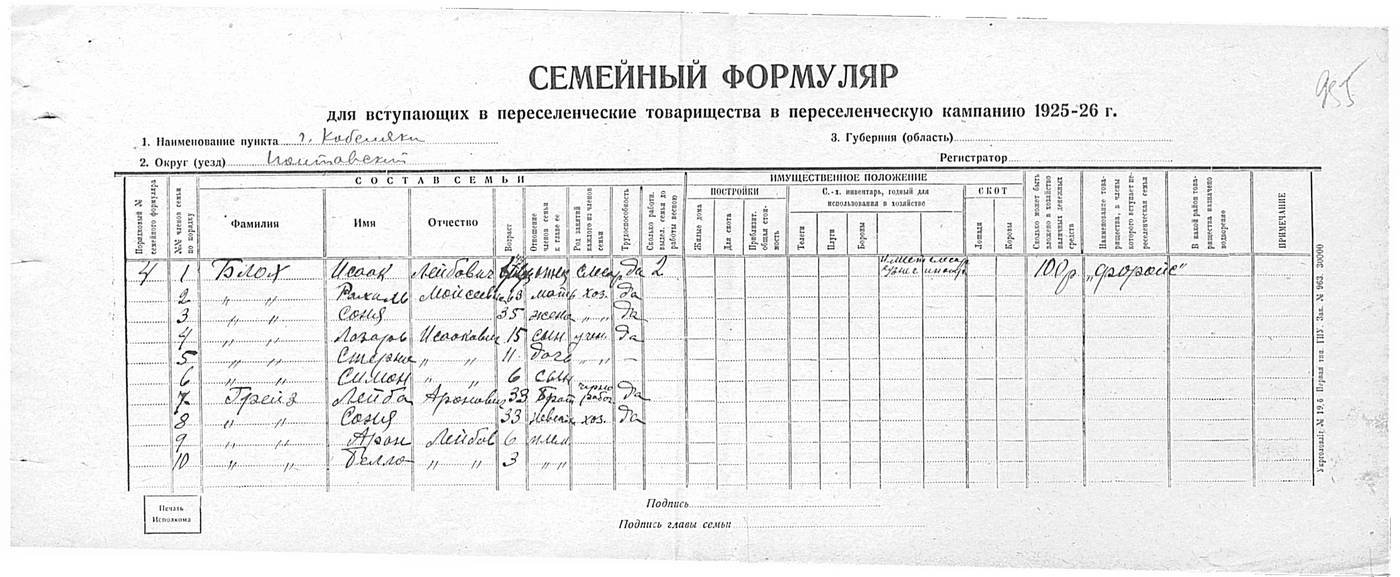 955
СЕМЕЙНЫЙ ФОРМУЛЯР
для вступающих в переселенческие товарищества в переселенческую кампанию 1925-26 г.
1. Наименование пункта г. Кобеляки 3. Губерния (область)
2. Округ (уезд) Полтавский Регистратор
СОСТАВ СЕМЬИ ИМУЩЕСТВЕННОЕ ПОЛОЖЕНИЕ
Порядковый № семейного формуляра
№№ членов семьи по порядку
Фамилия
Имя
Отчество
Возраст
Отношение членов семьи к главе ее
Род занятий каждого из членов семьи
Трудоспособность
Сколько работн. выдел. семья до работы весною
ПОСТРОЙКИ
Жилые дома
Для скота
Приблизит. общая стоимость
С.-х. инвентарь, годный для использования в хозяйстве
Телеги
Плуги
Бороны
СКОТ
Лошади
Коровы
Сколько может быть вложено в хозяйство наличных денежных средств
Наименование товарищества, в члены которого вступает переселенческая семья
В какой район товарищества назначено водворение
ПРИМЕЧАНИЕ
4 1 Блох Исаак Лейбович слесар да 2 100р „форойс"
2 " " Рахиль Моисеевн 63 мать хоз. да
3 " " Соня 35 жена " " да
4 " " Лазарь Исаакович 15 сын учен. да
5 " " " " 11 дочь " " —
6 " " Симон " " 6 сын
7 Грейз Лейба Аронович 33 Брат черно рабоч да
8 " " Соня 33 невестка хоз. да
9 " " Арон Лейбов 6 плем.
10 " " Белла " " 3 " "
Печать Исполкома
Подпись
Подпись главы семьи
Укрголовліт № 19,6 Перва тип. ГПУ. Зак. № 963. 30000